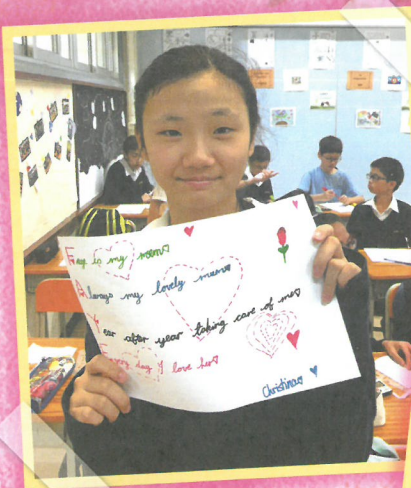 Faye is my mom♡
Always my lovely mum♡
Year after year taking care of me♡
Every day I love her♡
Christina♡